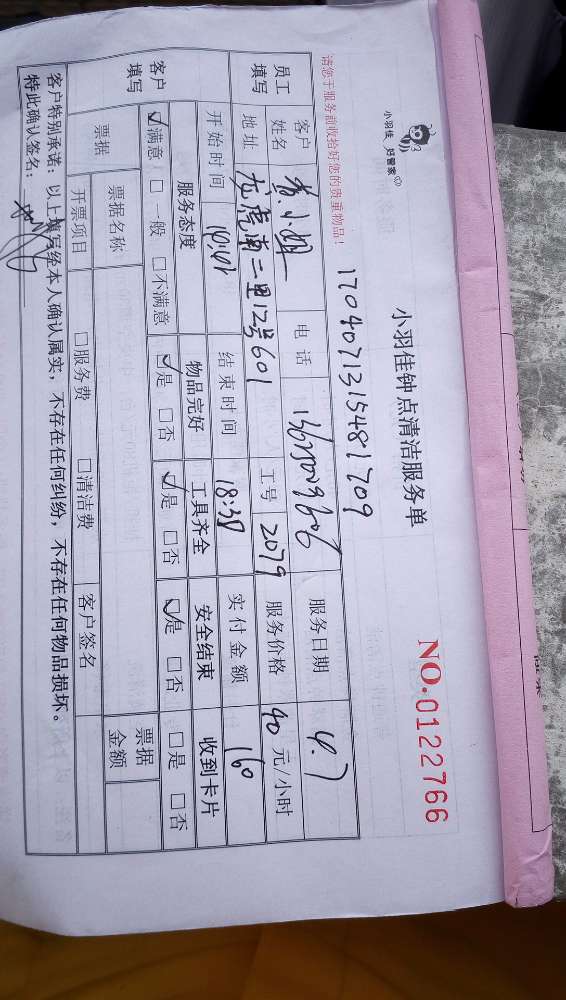 小羽佳 好管家
小羽佳钟点清洁服务单
NO.0122766
请您于服务前收拾好您的贵重物品！
1704071315481709
员工填写 客户姓名 黄小姐 电话 服务日期 4.7
地址 龙虎南二里12号601 工号 2079 服务价格 40 元/小时
开始时间 结束时间 18:38 实付金额 160
客户填写 服务态度 物品完好 工具齐全 安全结束 收到卡片
☑满意 □一般 □不满意 ☑是 □否 ☑是 □否 ☑是 □否 □是 □否
票据 票据名称 票据金额
开票项目 □服务费 □清洁费 客户签名
客户特别承诺：以上填写经本人确认属实，不存在任何纠纷，不存在任何物品损坏。
特此确认签名：